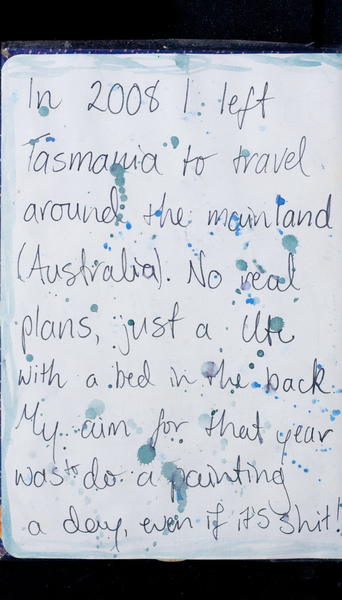 In 2008 I left
Tasmania to travel
around the mainland
(Australia). No real
plans, just a Ute
with a bed in the back
My aim for that year
was to do a painting
a day, even if it's shit!